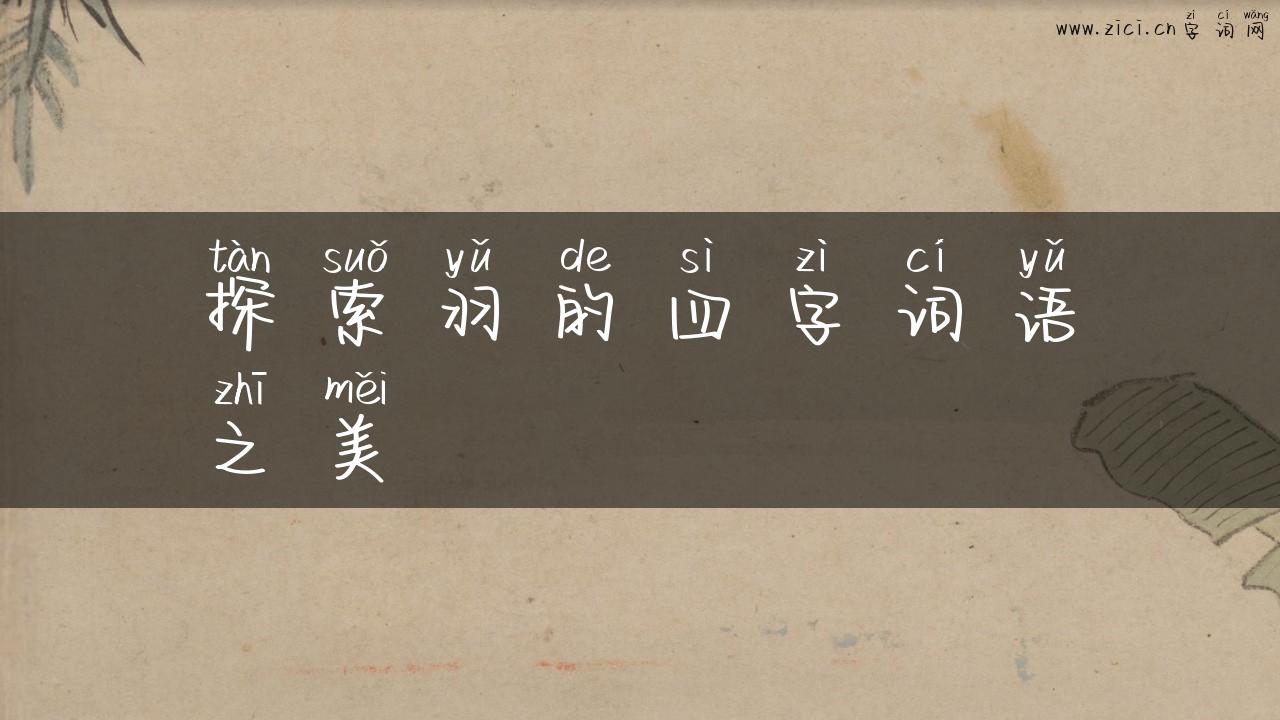 zì cí wǎng
www.zici.cn 字词网
tàn suǒ yǔ de sì zì cí yǔ
探索羽的四字词语
zhī měi
之美